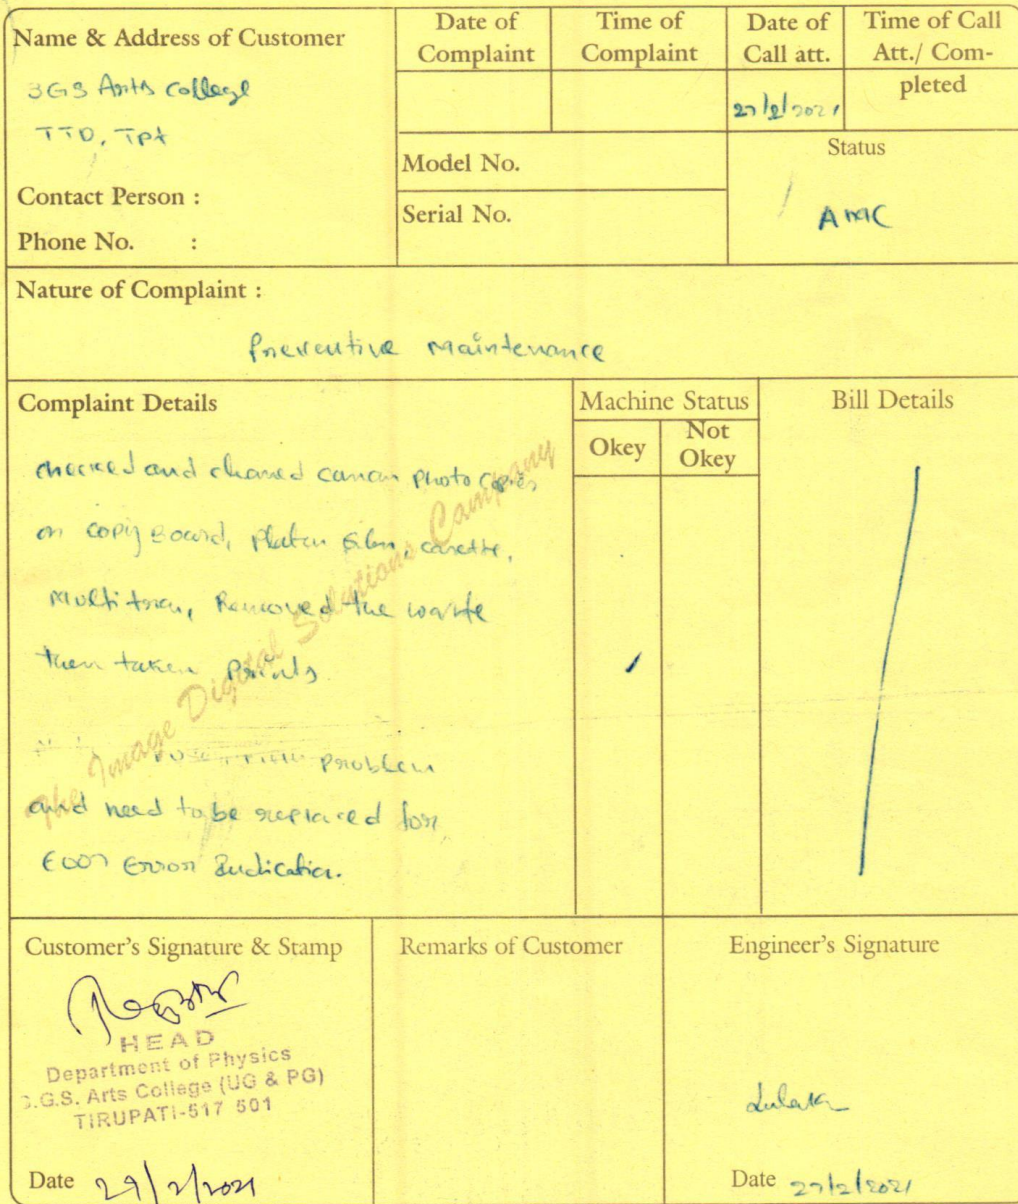 Name & Address of Customer
SGS Arts College
TTD, Tpt
Contact Person :
Phone No. :
Date of Complaint
Time of Complaint
Date of Call att.
27/2/2021
Time of Call Att./ Com-
pleted
Model No.
Serial No.
Status
AMC
Nature of Complaint :
Preventive Maintenance
Complaint Details
checked and cleaned canon photo copier
on copy Board, platen film, casette,
Multi tray, Removed the waste
then taken prints
problem
and need to be replaced for
E007 Error Indication.
The Image Digital Solutions Company
Machine Status
Okey
Not Okey
Bill Details
Customer's Signature & Stamp
HEAD
Department of Physics
S.G.S. Arts College (UG & PG)
TIRUPATI-517 501
Date 27/2/2021
Remarks of Customer
Engineer's Signature
Date 27/2/2021